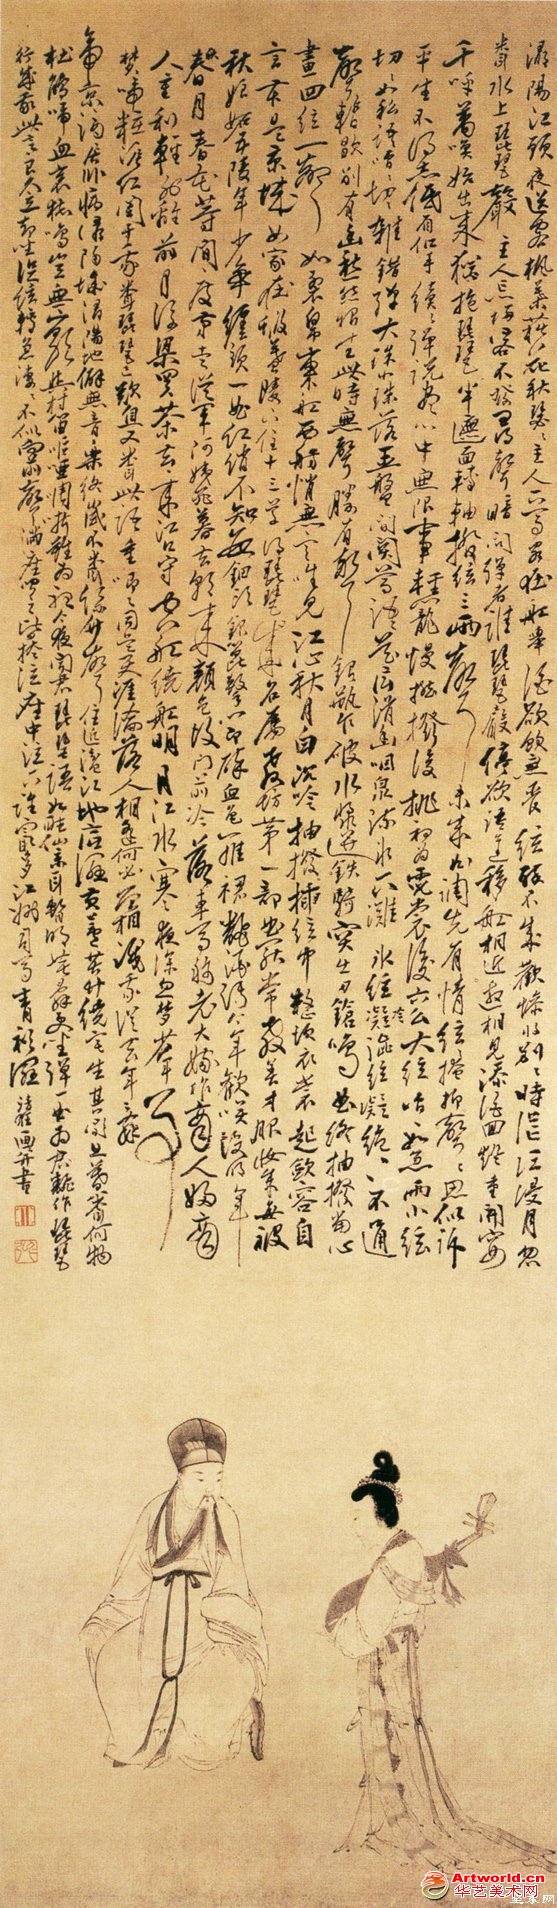 潯陽江頭夜送客楓葉荻花秋瑟ミ主人下馬客在船舉酒欲飲無管絃醉不成歡慘將別ミ時茫ミ江浸月忽
聞水上琵琶聲主人忘歸客不發尋聲暗問彈者誰琵琶聲停欲語遲移船相近邀相見添酒回燈重開宴
千呼萬喚始出來猶抱琵琶半遮面轉軸撥絃三兩聲未成曲調先有情絃ミ掩抑聲ミ思似訴
平生不得志低眉信手續ミ彈說盡心中無限事輕攏慢撚撥復挑初為霓裳後六么大絃嘈ミ如急雨小絃
切ミ如私語嘈ミ切ミ雜錯彈大珠小珠落玉盤間關鶯語花底滑幽咽泉流水下灘水絃冷澀絃凝絕ミ不通
聲暫歇別有幽愁暗恨生此時無聲勝有聲銀瓶乍破水漿迸鐵騎突出刀鎗鳴曲終抽撥當心
畫四絃一聲如裂帛東船西舫悄無言唯見江心秋月白沉吟抽撥插絃中整頓衣裳起斂容自
言本是京城女家在蝦蟇陵下住十三學得琵琶成名屬教坊第一部曲罷常教善才服妝成每被
秋娘妒五陵年少爭纏頭一曲紅綃不知數鈿頭銀篦擊節碎血色羅裙翻酒污今年歡笑復明年
春月春花等閒度弟走從軍阿姨死暮去朝來顏色故門前冷落車馬稀老大嫁作商人婦商
人重利輕別離前月浮梁買茶去去來江口守空船繞船明月江水寒夜深忽夢少年事
夢啼粧淚紅闌干我聞琵琶已歎息又聞此語重唧ミ同是天涯淪落人相逢何必曾相識我從去年辭
帝京謫居臥病潯陽城潯陽地僻無音樂終歲不聞絲竹聲住近湓江地低濕黃蘆苦竹繞宅生其間旦暮聞何物
杜鵑啼血哀猿鳴豈無山歌與村笛嘔啞嘲哳難為聽今夜聞君琵琶語如聽仙樂耳暫明莫辭更坐彈一曲為君翻作琵琶
行感我此言良久立却坐促絃絃轉急淒ミ不似向前聲滿座聞之皆掩泣座中泣下誰最多江州司馬青衫濕
清狂画并書
Artworld.cn
华艺美术网